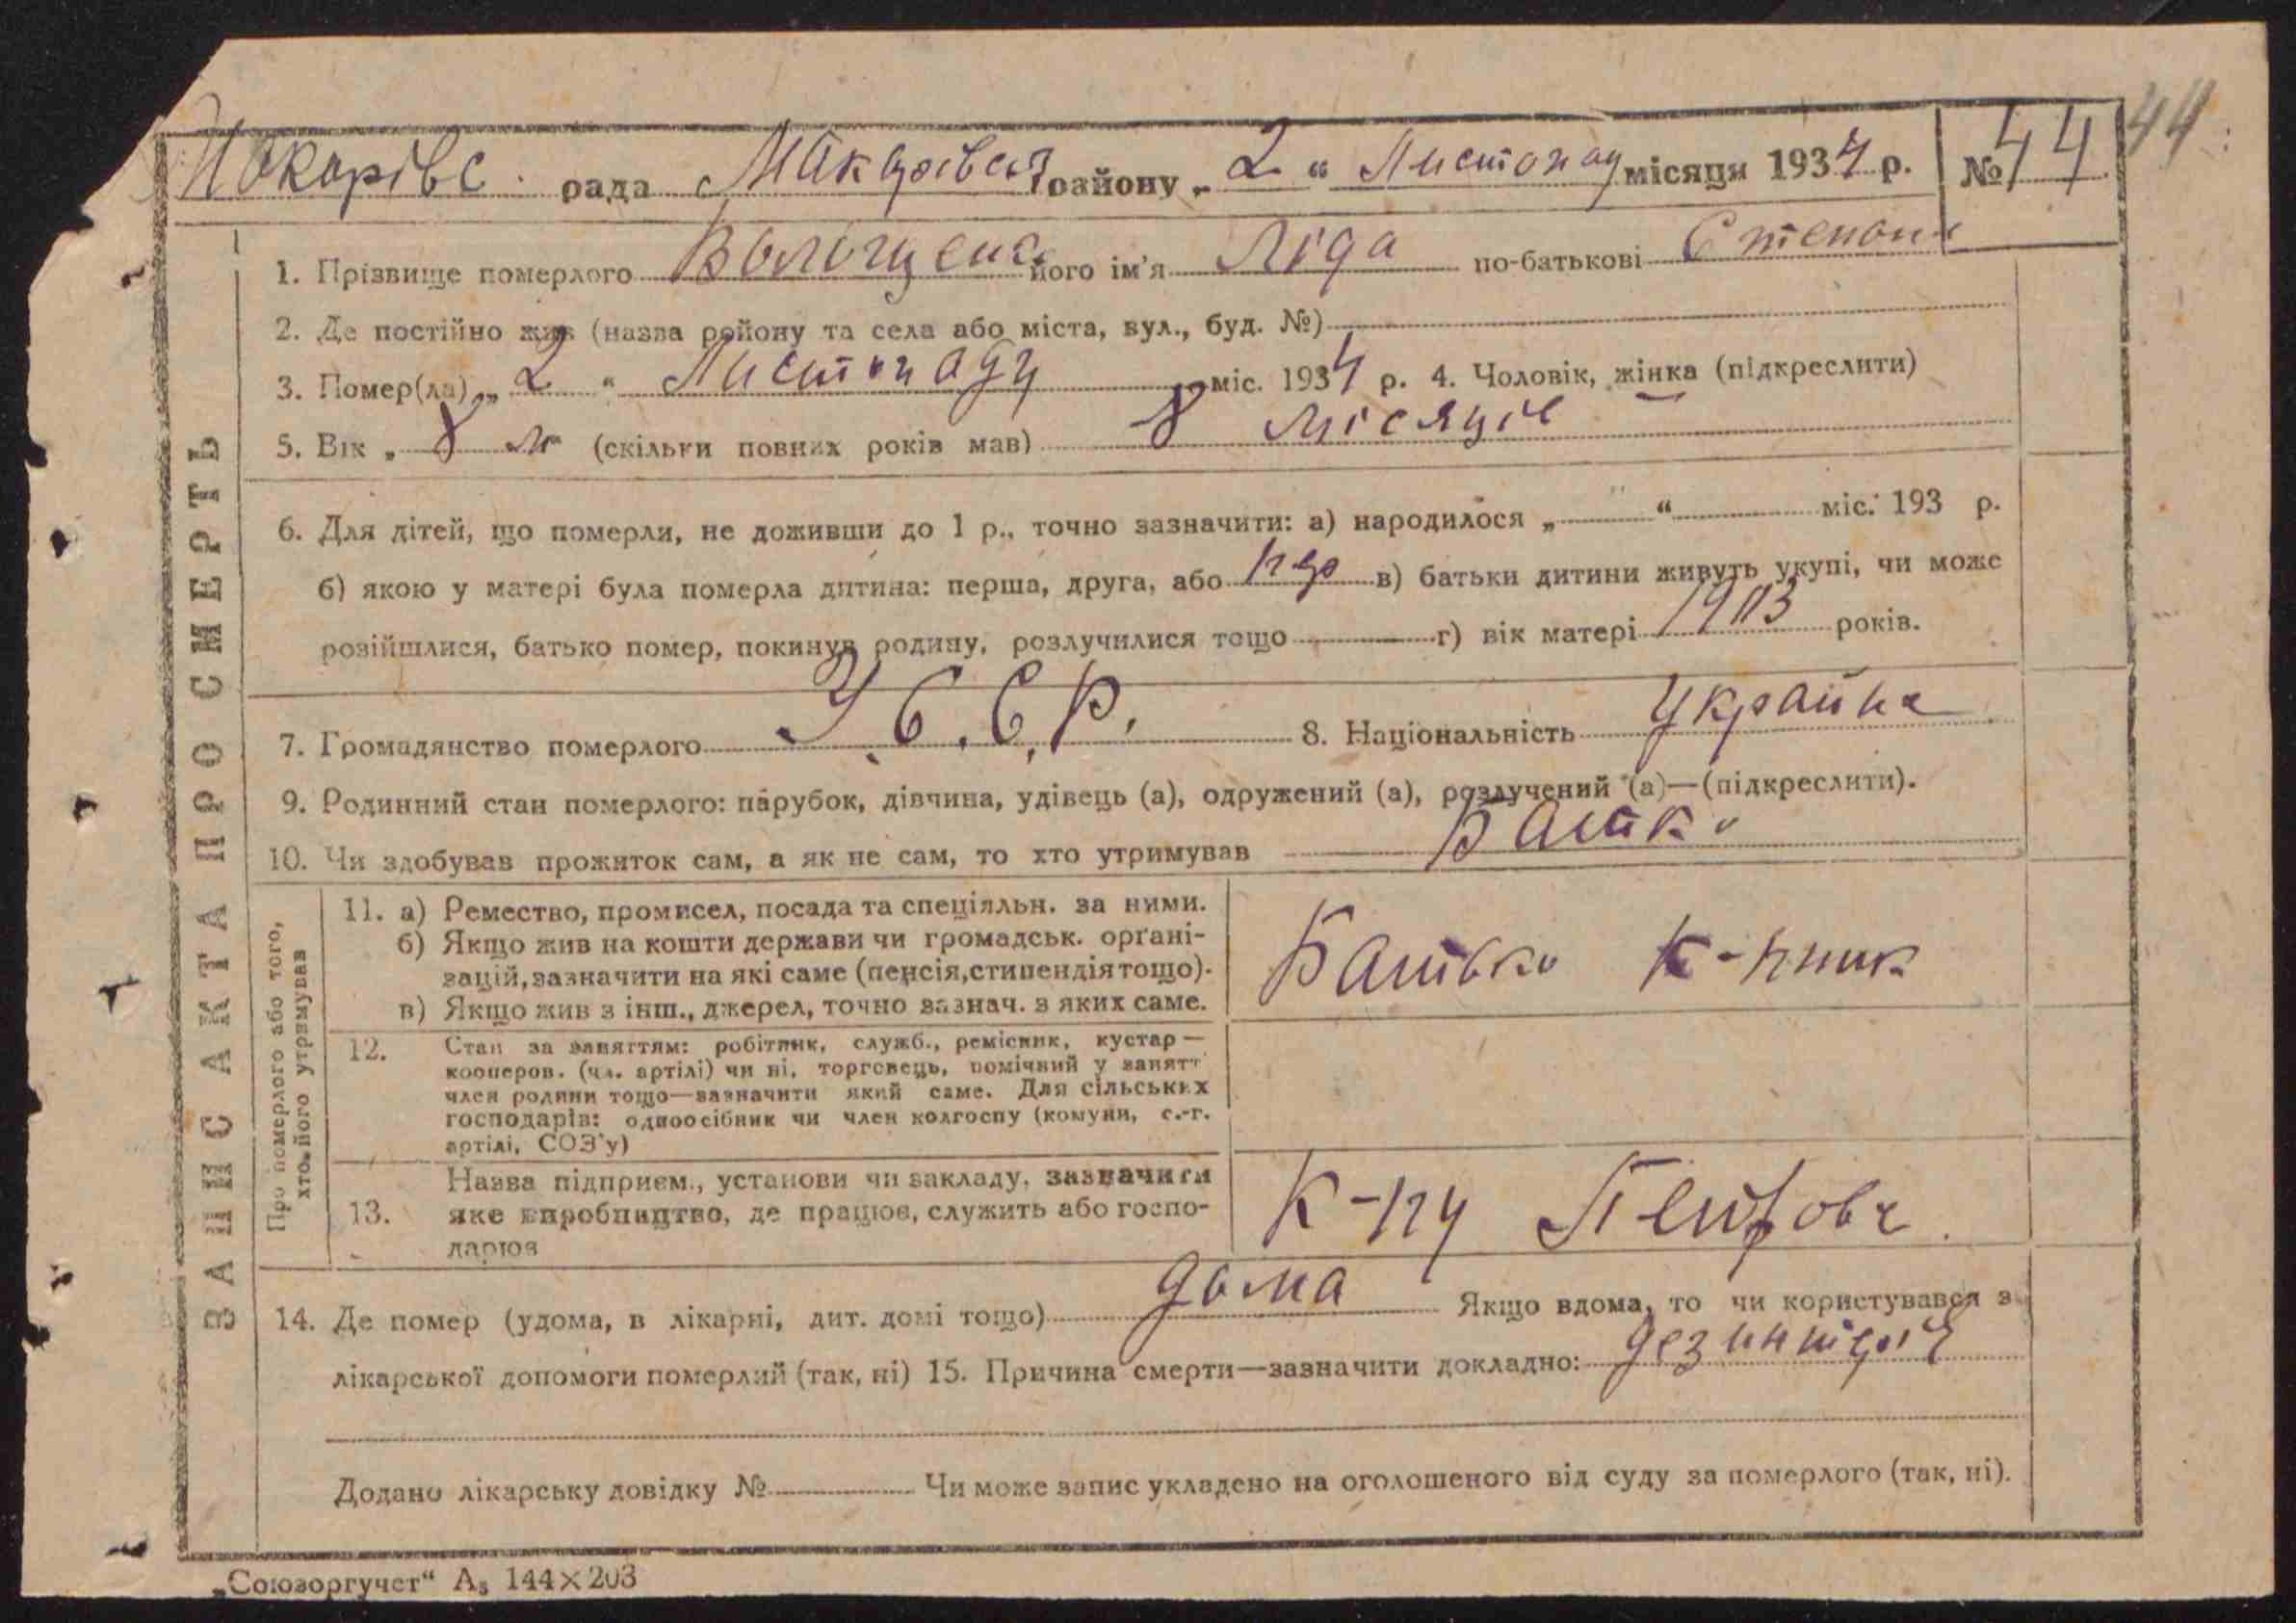 44
Макарівс. рада Макарівськ району „ 2 “ Листопад місяця 1934 р. № 44
ЗАПИС АКТА ПРО СМЕРТЬ
1. Прізвище померлого його ім'я Ліда по-батькові Степан
2. Де постійно жив (назва району та села або міста, вул., буд. №)
3. Помер(ла) „ 2 “ Листопаду міс. 1934 р. 4. Чоловік, жінка (підкреслити)
5. Вік „ 8 м (скільки повних років мав) 8 місяців
6. Для дітей, що померли, не доживши до 1 р., точно зазначити: а) народилося „ “ міс. 193 р.
б) якою у матері була померла дитина: перша, друга, або в) батьки дитини живуть укупі, чи може
розійшлися, батько помер, покинув родину, розлучилися тощо г) вік матері 1903 років.
7. Громадянство померлого У.С.С.Р. 8. Національність Україн
9. Родинний стан померлого: парубок, дівчина, удівець (а), одружений (а), розлучений (а)—(підкреслити).
10. Чи здобував прожиток сам, а як не сам, то хто утримував Батько
Про померлого або того, хто його утримував
11. а) Ремество, промисел, посада та спеціяльн. за ними.
б) Якщо жив на кошти держави чи громадськ. органі-
зацій, зазначити на які саме (пенсія, стипендія тощо).
в) Якщо жив з інш., джерел, точно зазнач. з яких саме.
Батько к-пник
12. Стан за заняттям: робітник, служб., ремісник, кустар—
кооперов. (чл. артілі) чи ні, торговець, помічний у занятт
член родини тощо—зазначити який саме. Для сільських
господарів: одноосібник чи член колгоспу (комуни, с.-г.
артілі, СОЗ'у)
13. Назва підприєм., установи чи закладу, зазначити
яке виробництво, де працює, служить або госпо-
дарює
К-пу Петров
14. Де помер (удома, в лікарні, дит. домі тощо) дома Якщо вдома, то чи користувався з
лікарської допомоги померлий (так, ні) 15. Причина смерти—зазначити докладно:
Додано лікарську довідку № Чи може запис укладено на оголошеного від суду за померлого (так, ні).
„Союзоргучет“ А₅ 144×203